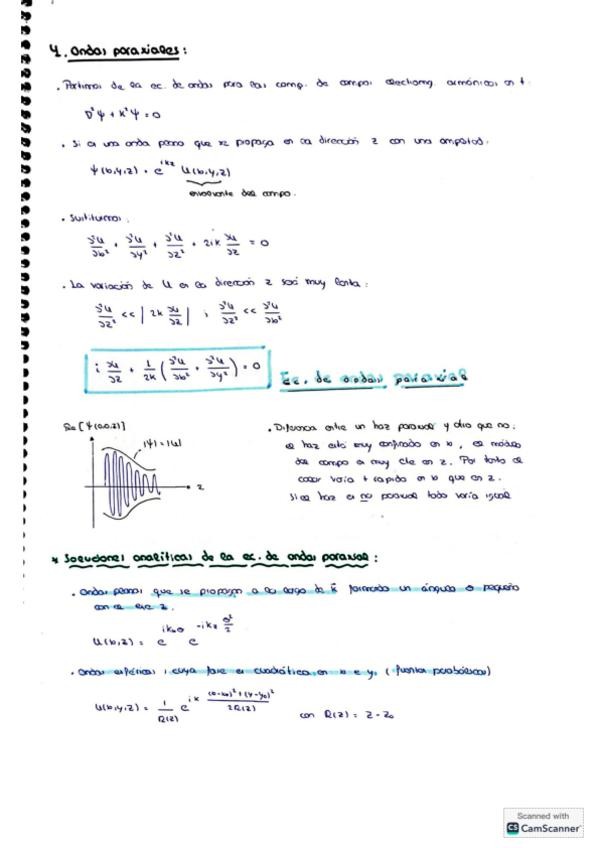 4. Ondas paraxiales:
· Partimos de la ec. de ondas para las comp. de campos electromg. armónicos en t.
∇²Ψ + k²Ψ = 0
· Si es una onda plana que se propaga en la dirección z con una amplitud:
Ψ(x,y,z) = e^{ikz} U(x,y,z)
envolvente del campo.
· Sustituimos:
∂²U/∂x² + ∂²U/∂y² + ∂²U/∂z² + 2ik ∂U/∂z = 0
· La variación de U en la dirección z será muy lenta:
∂²U/∂z² << |2k ∂U/∂z| ; ∂²U/∂z² << ∂²U/∂x²
i ∂U/∂z + 1/2k (∂²U/∂x² + ∂²U/∂y²) = 0
Ec. de ondas paraxial
Re[Ψ(0,0,z)]
|Ψ| = |U|
z
· Diferencia entre un haz paraxial y otro que no:
el haz está muy confinado en x, el módulo
del campo es muy cte en z. Por tanto el
campo varía + rápido en x que en z.
Si el haz es no paraxial todo varía igual
* Soluciones analíticas de la ec. de ondas paraxial:
· Ondas planas que se propagan a lo largo de k formando un ángulo θ pequeño
con el eje z.
U(x,z) = e^{ikxθ} e^{-ikz θ²/2}
· Ondas esféricas, cuya fase es cuadrática en x e y. (frentes parabólicos)
U(x,y,z) = 1/R(z) e^{ik ((x-x₀)²+(y-y₀)²)/2R(z)} con R(z) = z - z₀
Scanned with
CS CamScanner